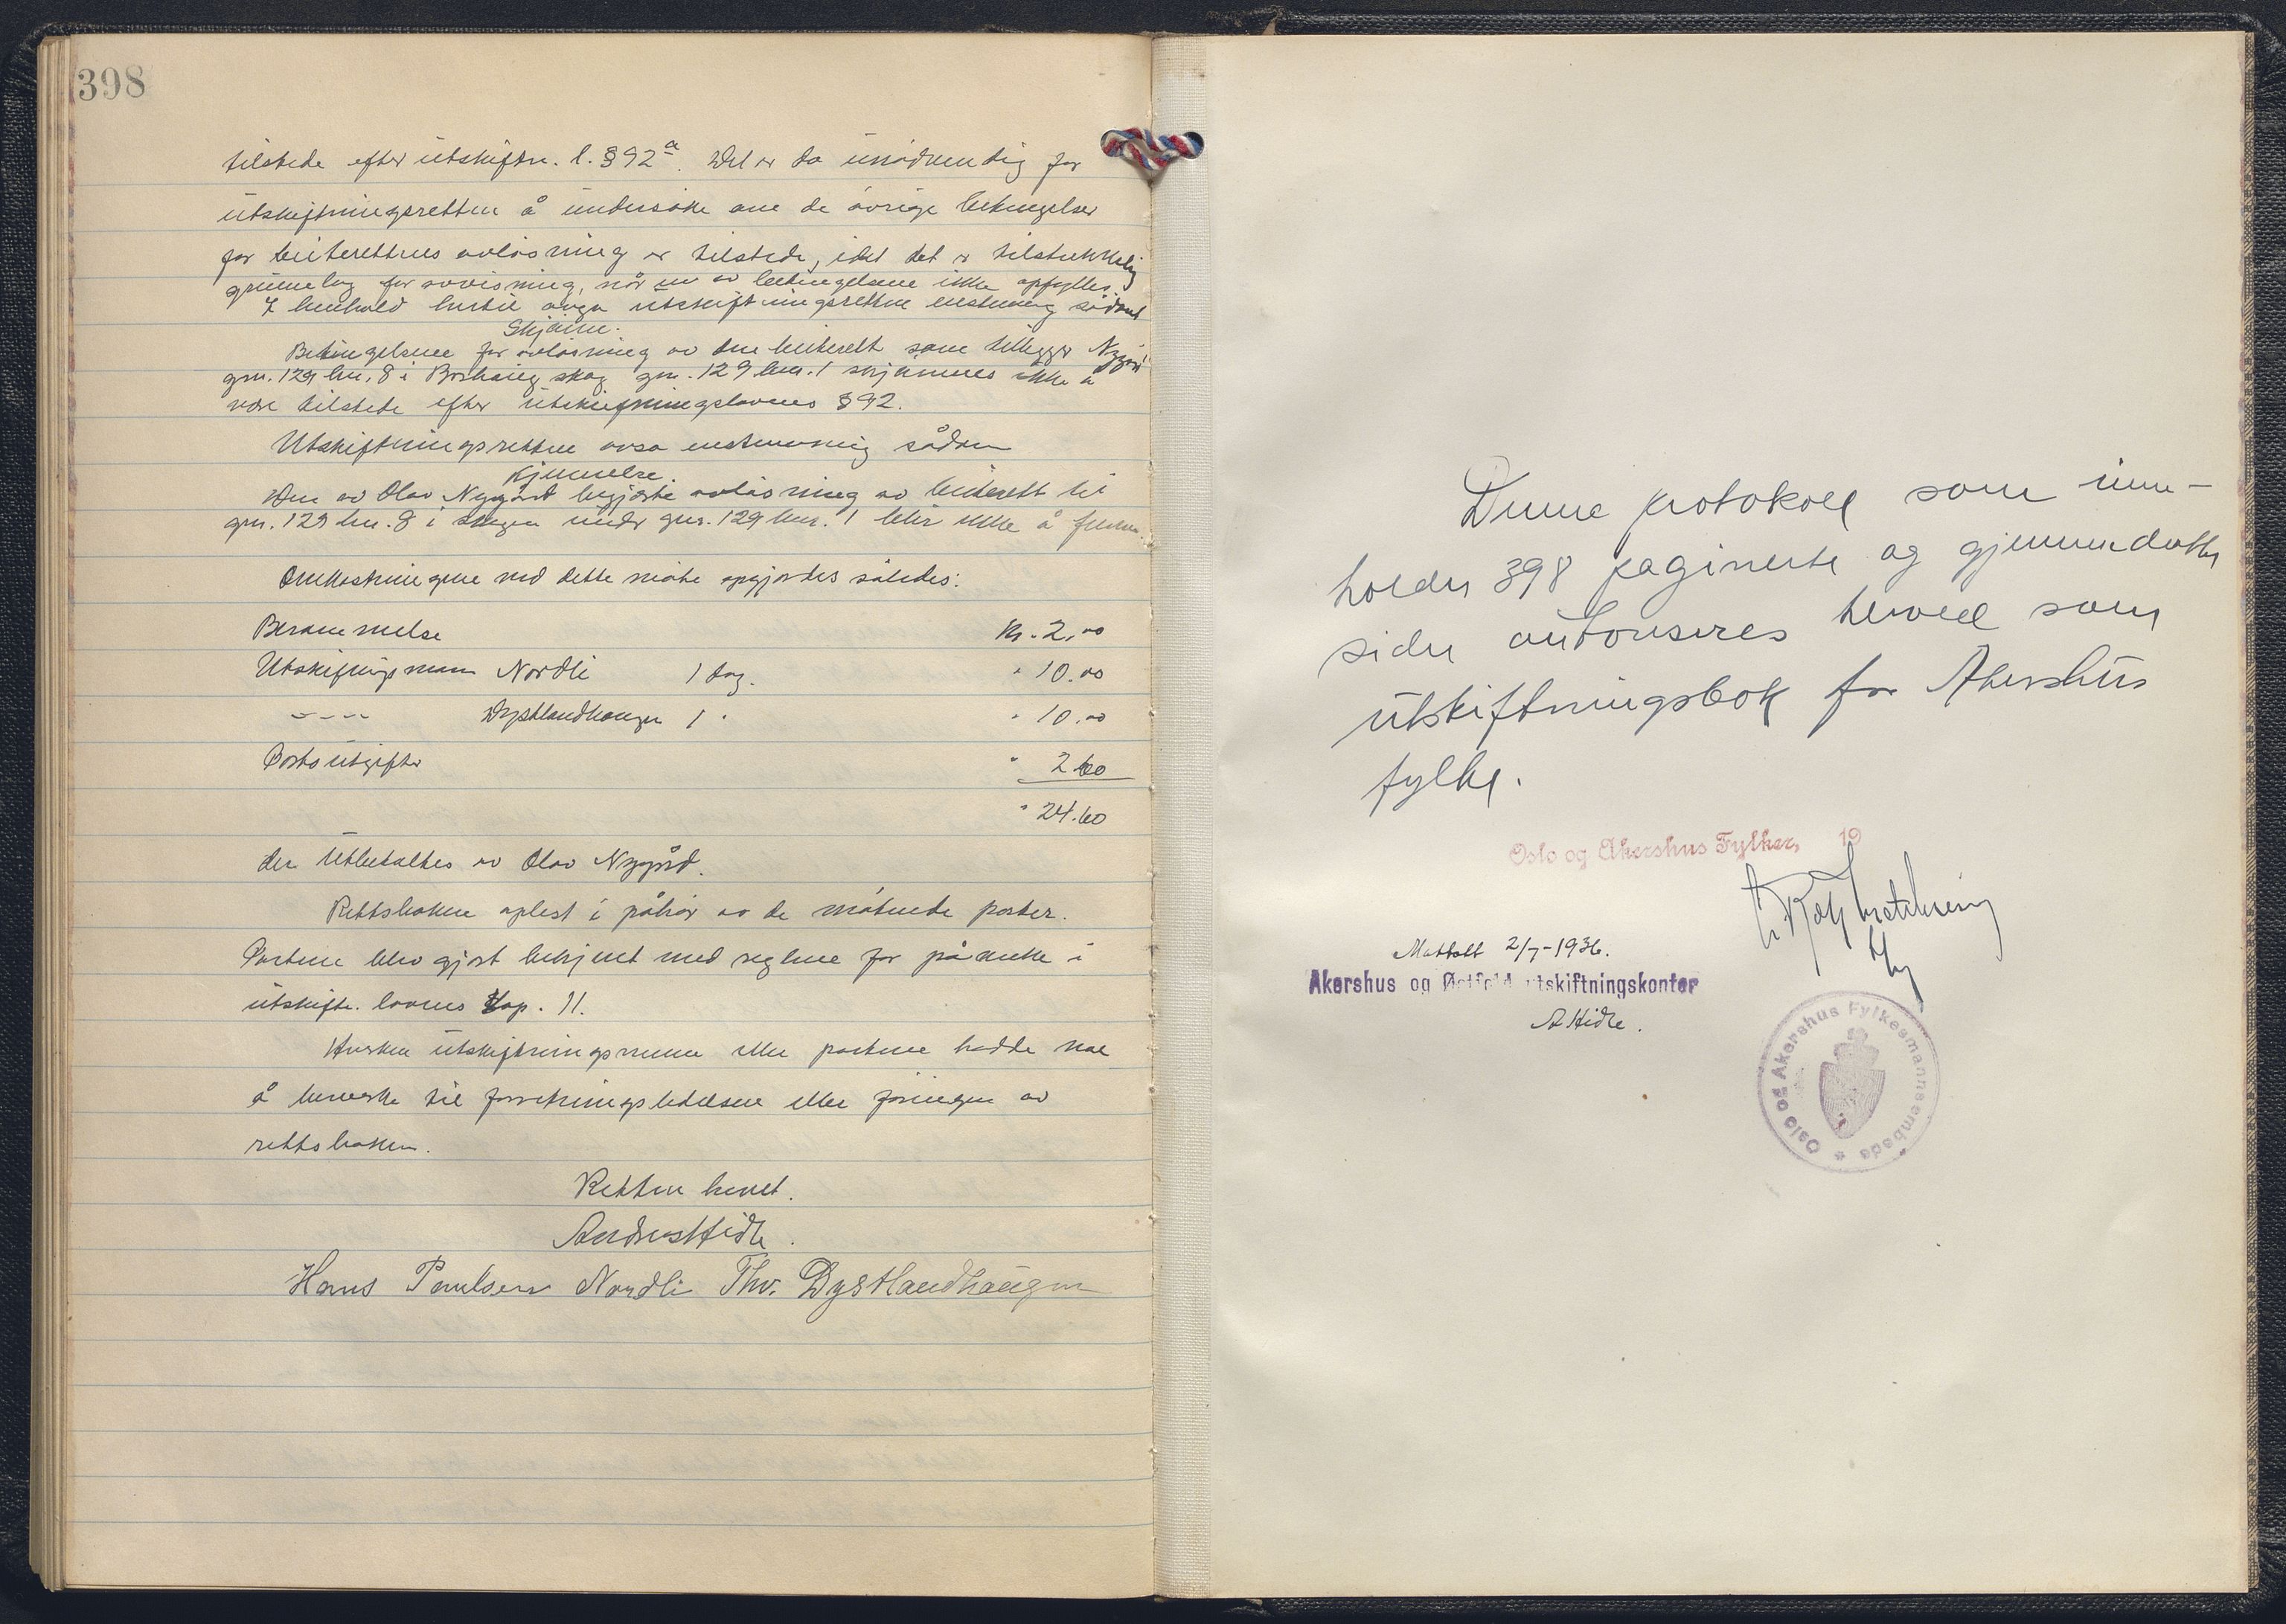 398
tilstede efter utskiftn. l. § 92a. Det er da unødvendig for
utskiftningsretten å undersøke om de øvrige betingelser
for beiterettens avløsning er tilstede, idet det er tilstrekkelig
grunnlag for avvisning, når en av betingelsene ikke opfylles.
I henhold hertil avga utskiftningsretten enstemmig sådant
Skjønn.
Betingelsene for avløsning av den beiterett som tillegger Nygård
gnr. 129 bnr. 8 i Borhaug skog gnr. 129 bnr. 1 skjønnes ikke å
være tilstede efter utskiftningslovens § 92.
Utskiftningsretten avsa enstemmig sådan
Kjennelse.
Den av Olav Nygård begjærte avløsning av beiterett til
gnr. 129 bnr. 8 i skogen under gnr. 129 bnr. 1 blir ikke å fremme.
Omkostningene med dette møte opgjordes således:
Berammelse Kr. 2,00
Utskiftningsmann Nordli 1 dag. " 10.00
---- Dystlandhaugen 1 " " 10.00
Portoutgifter " 2.60
" 24.60
der utbetaltes av Olav Nygård.
Rettsboken oplest i påhør av de møtende parter.
Partene blev gjort bekjent med reglene for påanke i
utskiftn. lovens kap. 11.
Hverken utskiftningsmenn eller partene hadde noe
å bemerke til forretningsledelsen eller føringen av
rettsboken.
Retten hevet.
Andreas Hidle.
Hans Paulsen Nordli Thv. Dystlandhaugen
Denne protokoll som inne-
holder 398 paginerte og gjennemdratte
sider autoriseres herved som
utskiftningsbok for Akershus
fylke.
Oslo og Akershus Fylker, 19
Mottatt 2/7-1936.
Akershus og Østfold utskiftningskontor
A Hidle.
Oslo og Akershus Fylkesmannsembede *